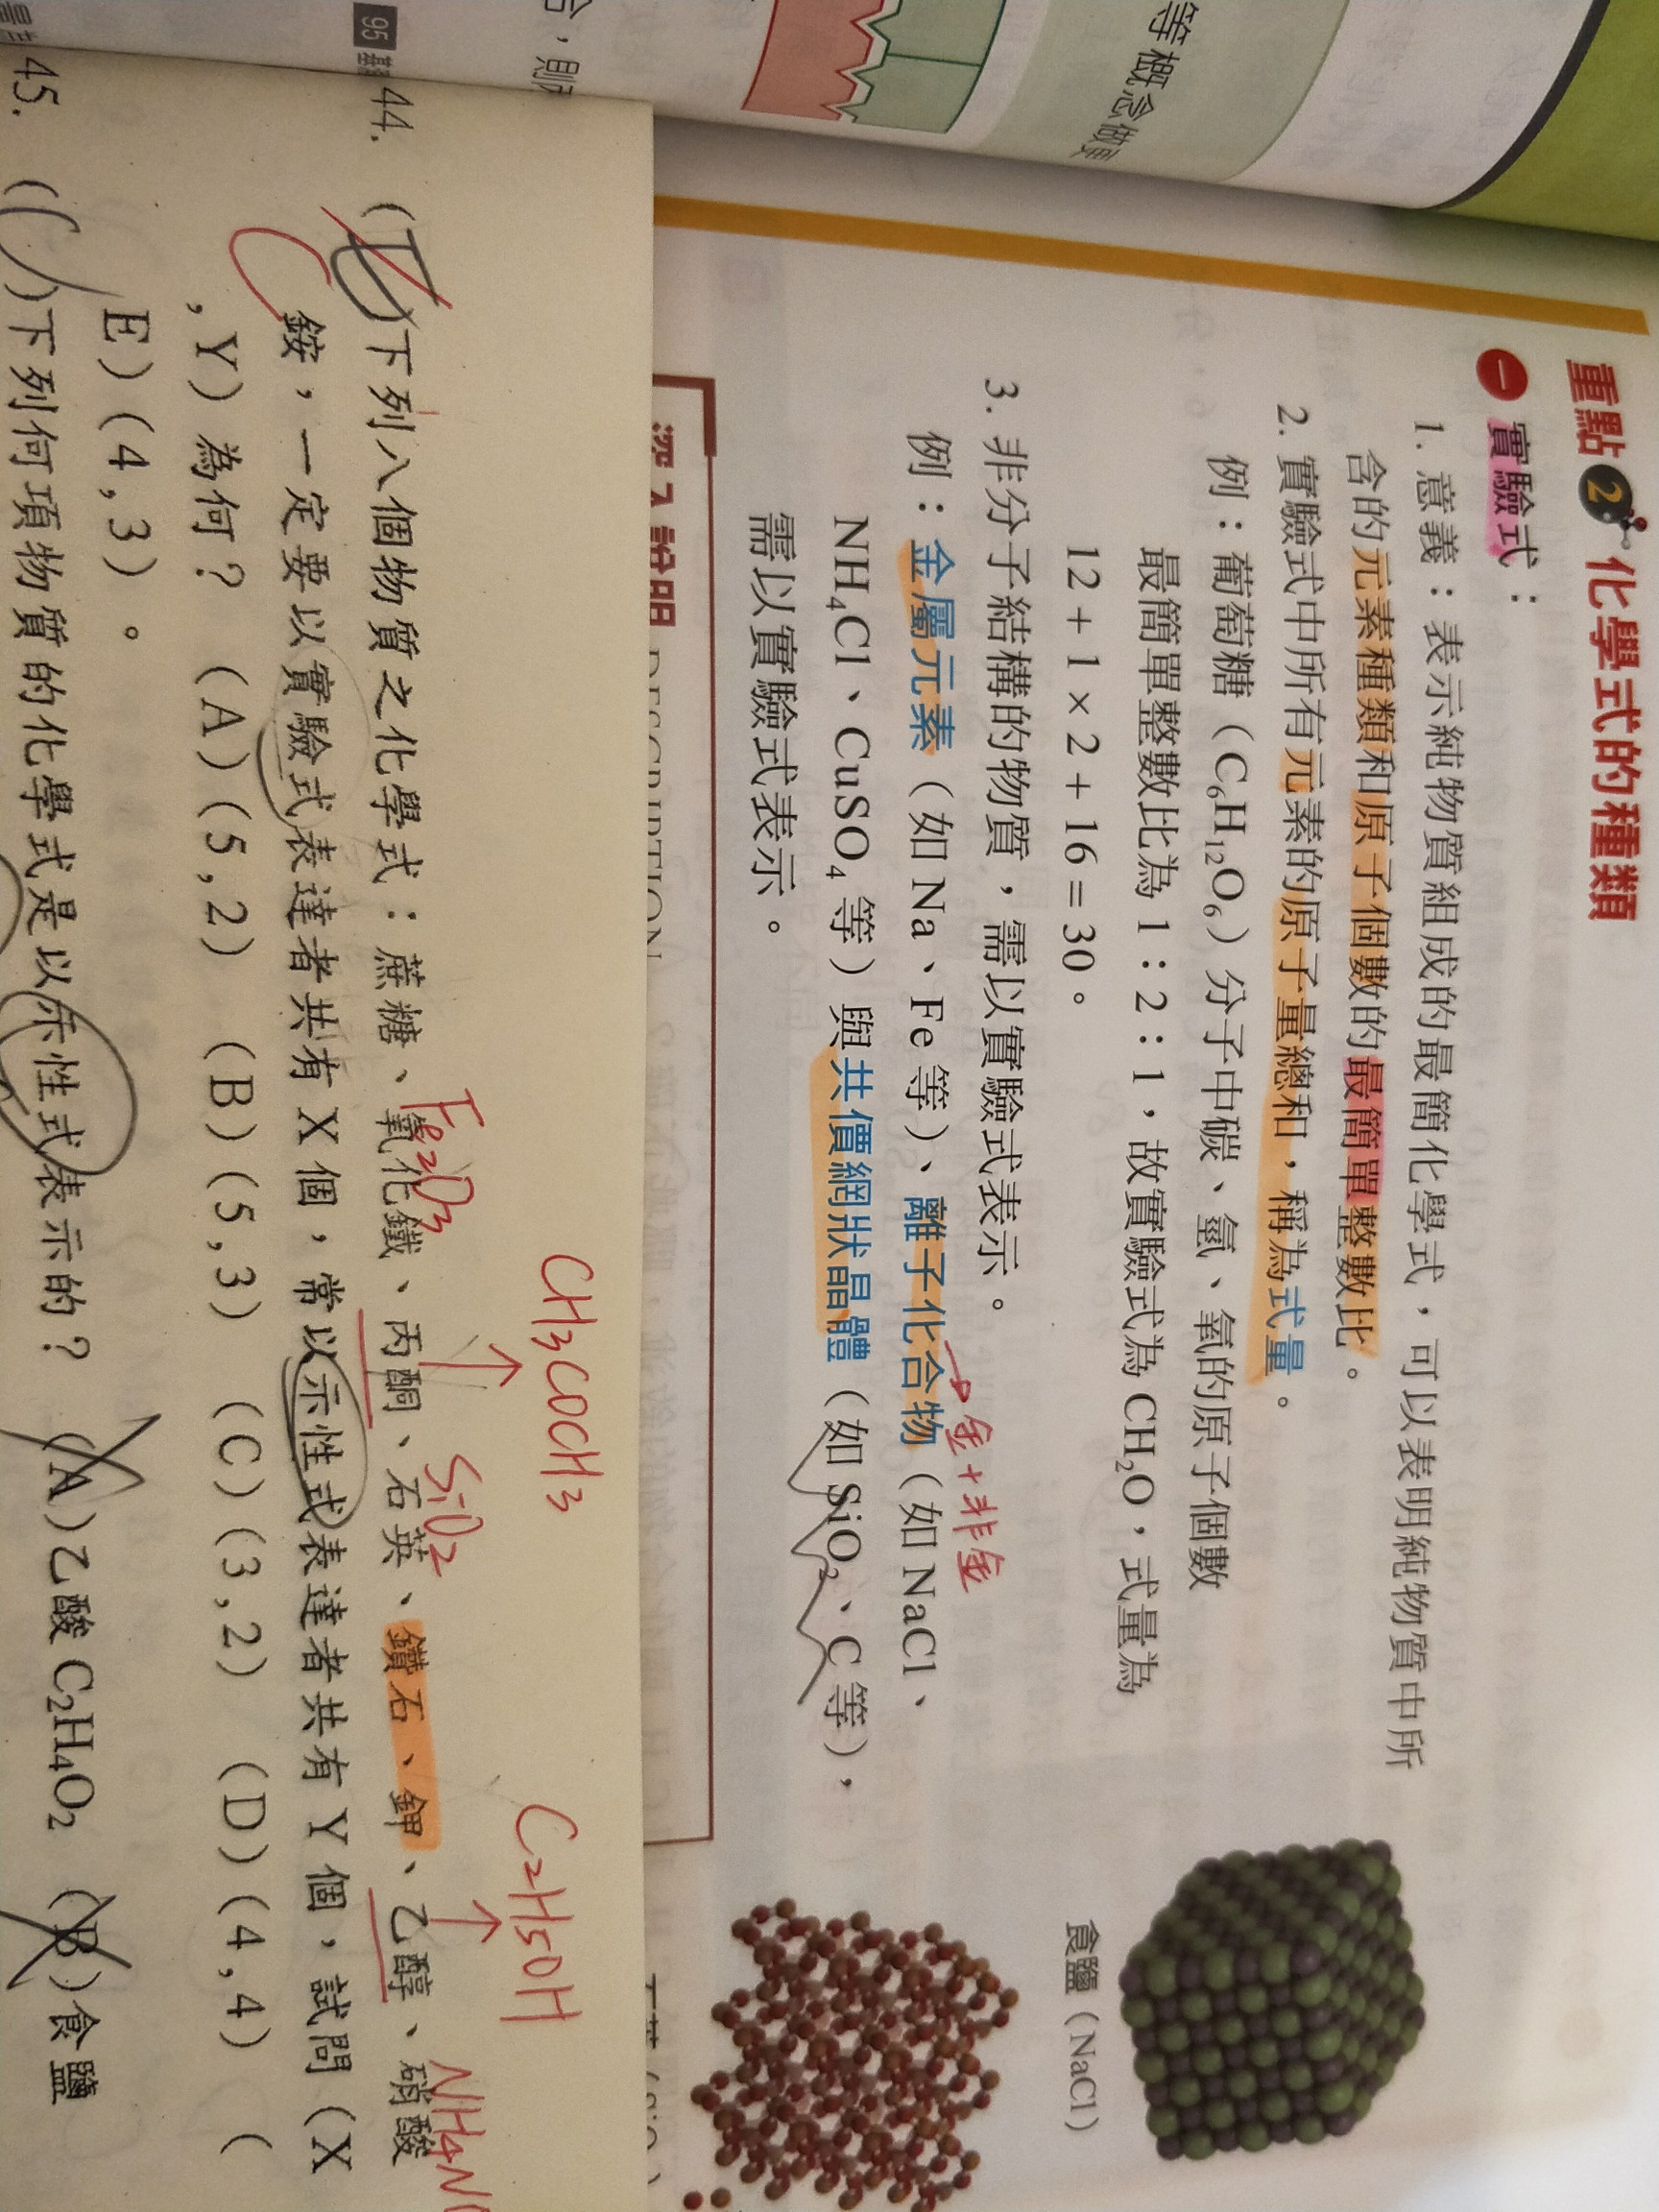 等概念做更
含,則
重點2 化學式的種類
一 實驗式:
1. 意義:表示純物質組成的最簡化學式,可以表明純物質中所
含的元素種類和原子個數的最簡單整數比。
2. 實驗式中所有元素的原子量總和,稱為式量。
例:葡萄糖(C₆H₁₂O₆)分子中碳、氫、氧的原子個數
最簡單整數比為 1:2:1,故實驗式為 CH₂O,式量為
12 + 1 × 2 + 16 = 30。
3. 非分子結構的物質,需以實驗式表示。
例:金屬元素(如 Na、Fe 等)、離子化合物(如 NaCl、
→金+非金
NH₄Cl、CuSO₄ 等)與共價網狀晶體(如 SiO₂、C 等),
需以實驗式表示。
食鹽(NaCl)
深入說明 DESCRIPTION
CH3COCH3
C2H5OH
Fe2O3
SiO2
NH4N
95
44. ( )下列八個物質之化學式:蔗糖、氧化鐵、丙酮、石英、鑽石、鉀、乙醇、硝酸
銨,一定要以實驗式表達者共有 X 個,常以示性式表達者共有 Y 個,試問(X
,Y)為何? (A)(5,2) (B)(5,3) (C)(3,2) (D)(4,4) (
E)(4,3)。
45. (C)下列何項物質的化學式是以示性式表示的? (A)乙酸 C2H4O2 (B)食鹽